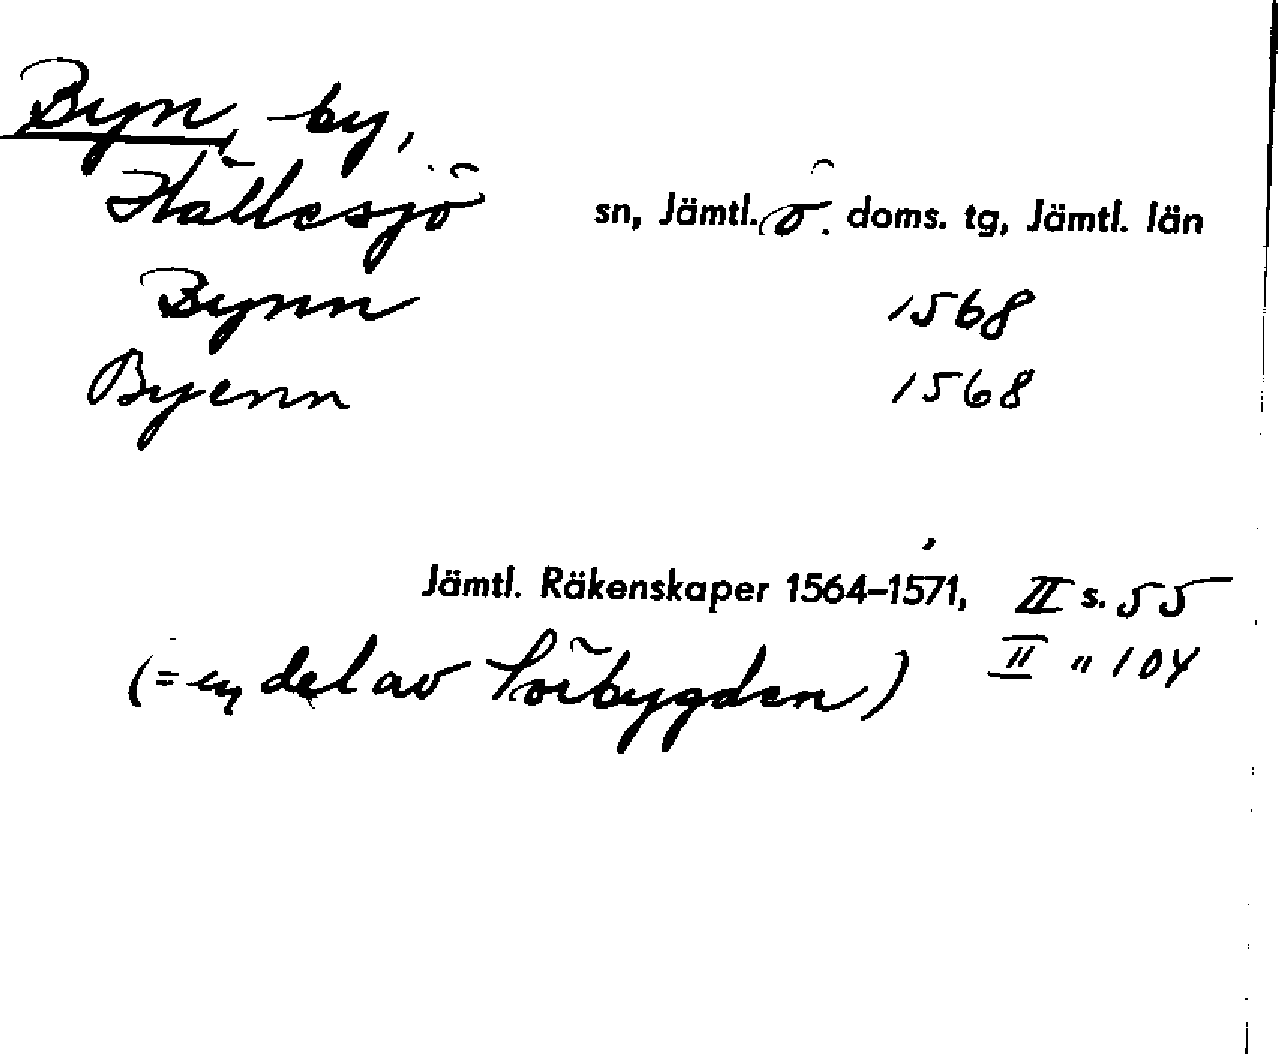 Byn, by,
Hällesjö sn, Jämtl. ö. doms. tg, Jämtl. län
Bynn 1568
Byenn 1568
Jämtl. Räkenskaper 1564–1571, II s. 55
(= en del av Sörbygden) II " 104